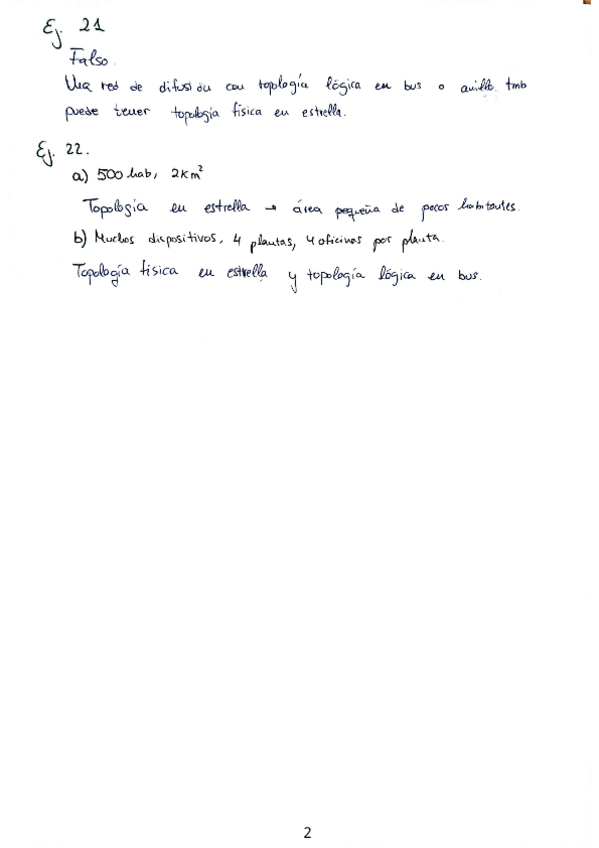 Ej. 21
Falso.
Una red de difusión con topología lógica en bus o anillo tmb
puede tener topología física en estrella.
Ej. 22.
a) 500 hab, 2km²
Topología en estrella → área pequeña de pocos habitantes.
b) Muchos dispositivos, 4 plantas, 4 oficinas por planta.
Topología física en estrella y topología lógica en bus.
2